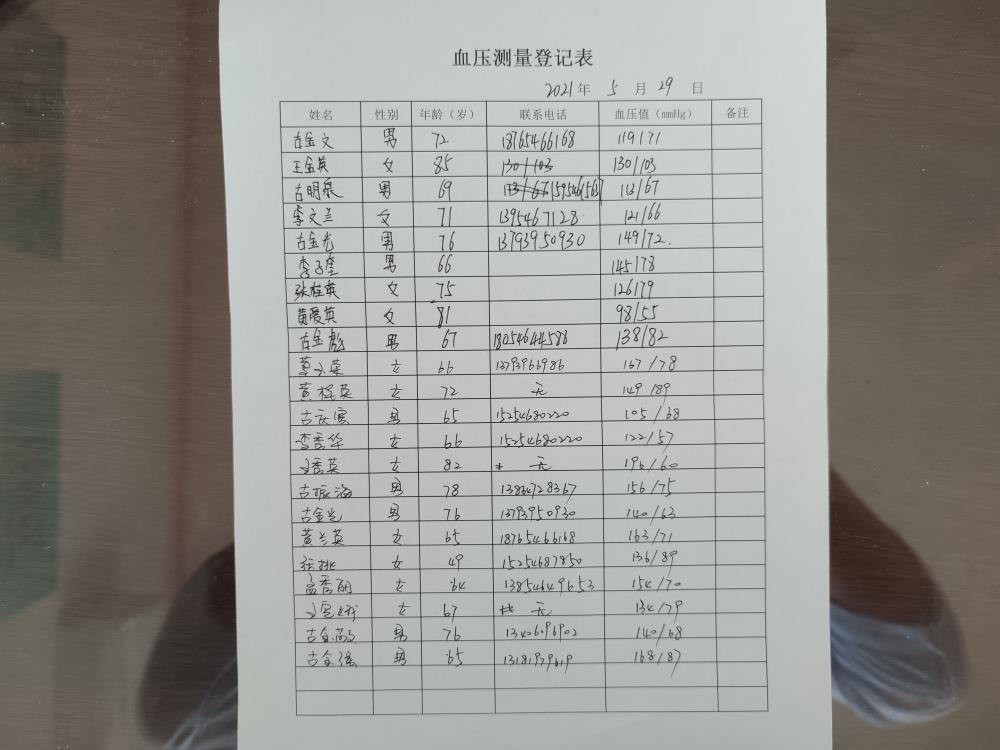 血压测量登记表
2021年 5 月 29 日
姓名 性别 年龄（岁） 联系电话 血压值（mmHg） 备注
古金文 男 72 18765466168 119/71
王金英 女 85 130/103 130/103
古明泉 男 69 113/67
李文兰 女 71 1395467128 121/66
古金光 男 76 13793950930 149/72.
李子奎 男 66 145/78
张桂英 女 75 126/79
黄爱英 女 81 98/55
古金彪 男 67 18054644588 138/82
女 66 13793966986 167/78
黄桂英 女 72 无 149/89
古庆宽 男 65 15254680220 105/68
李秀华 女 66 15254680220 122/57
刘秀英 女 82 无 196/60
古振海 男 78 13834728367 156/75
古金光 男 76 13793950930 140/63
黄兰英 女 65 18765466168 163/71
女 49 15254687850 136/89
孟秀丽 女 64 13854649653 154/70
女 67 无 134/79
古金 男 76 13406096902 140/68
古金强 男 65 13181979619 168/87